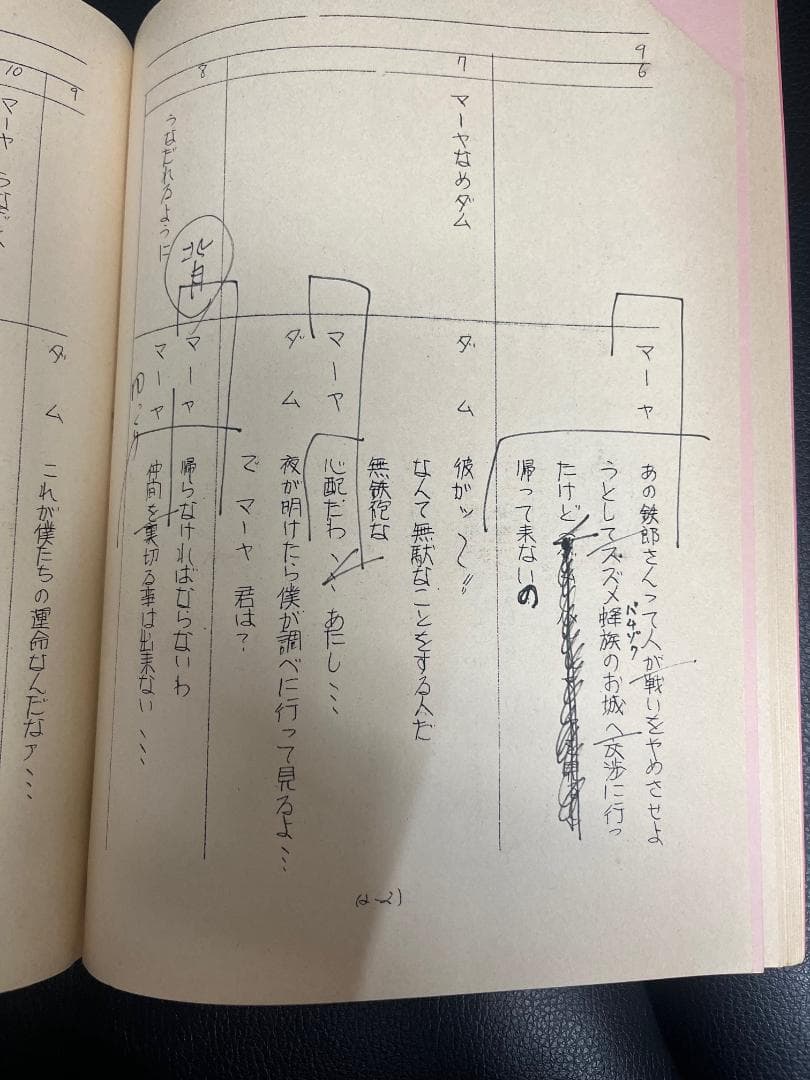 9
6
マーヤ
あの鉄郎さんって人が戦いをやめさせよ
うとしてスズメ蜂族のお城へ交渉に行っ
バチゾク
たけど
帰って来ないの
7
マーヤなめダム
ダム
彼がッ〜!!
なんて無駄なことをする人だ
無鉄砲な
マーヤ
心配だわ、、あたし、、、
ダム
夜が明けたら僕が調べに行って見るよ、、、
で マーヤ 君は?
8
うなだれるように
背
マーヤ
帰らなければならないわ
マーヤ
仲間を裏切る事は出来ない、、、
(a-2)
9
ダム
これが僕たちの運命なんだなァ、、、
10
マーヤ